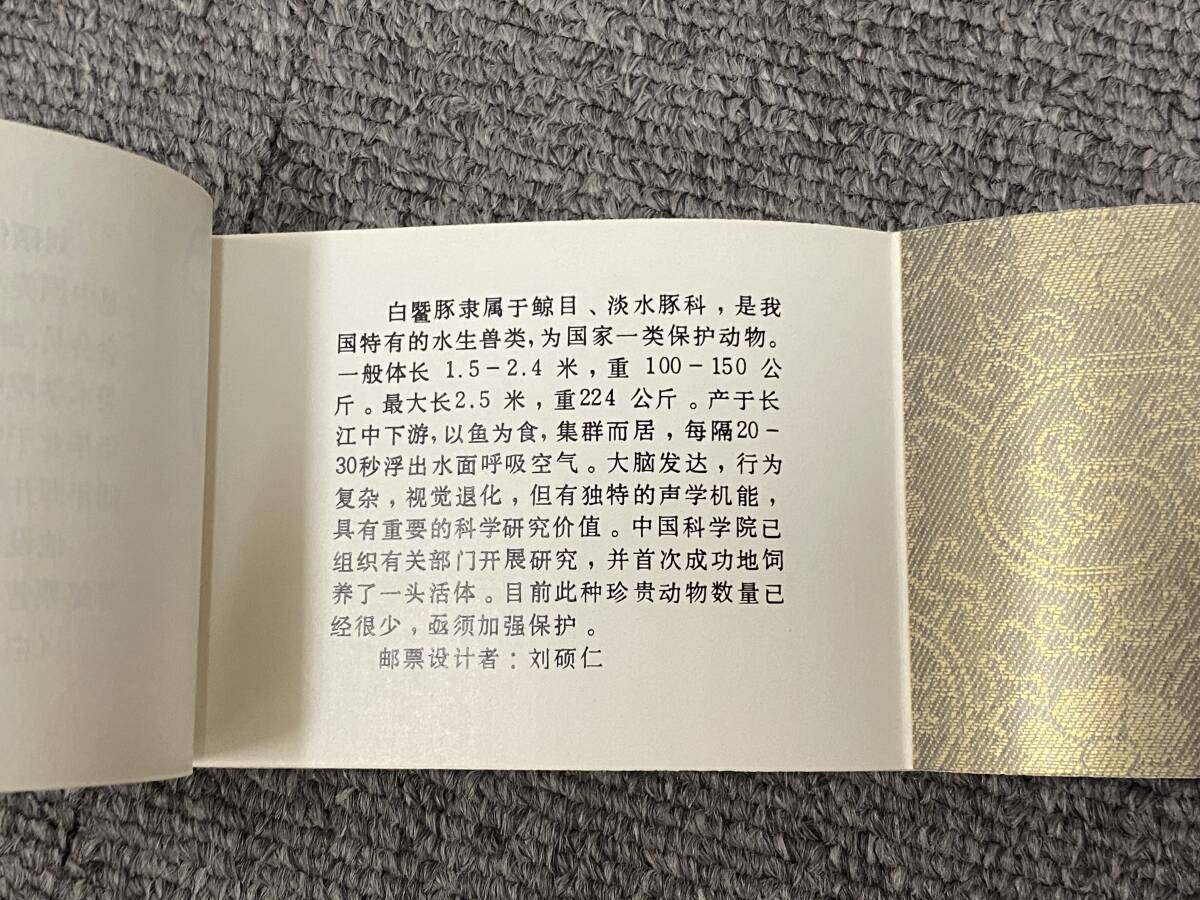 白鱀豚隶属于鲸目、淡水豚科，是我
国特有的水生兽类，为国家一类保护动物。
一般体长 1.5－2.4 米，重 100－150 公
斤。最大长2.5 米，重224 公斤。产于长
江中下游，以鱼为食，集群而居，每隔20－
30秒浮出水面呼吸空气。大脑发达，行为
复杂，视觉退化，但有独特的声学机能，
具有重要的科学研究价值。中国科学院已
组织有关部门开展研究，并首次成功地饲
养了一头活体。目前此种珍贵动物数量已
经很少，亟须加强保护。
邮票设计者：刘硕仁